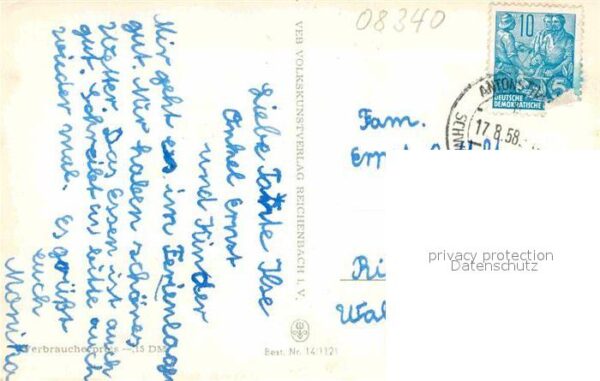 08340
Liebe Tante Ilse
Onkel Ernst
und Kinder
Mir geht es im Ferienlager
gut. Wir haben schönes
Wetter. Das Essen ist auch
gut. Schreibt uns bitte auch
wieder mal. Es grüßt
euch
Monika
VEB VOLKSKUNSTVERLAG REICHENBACH I. V.
Verbraucherpreis —,15 DM
Best. Nr. 14/1121
10
DEUTSCHE
DEMOKRATISCHE
17.8.58
Fam.
privacy protection
Datenschutz